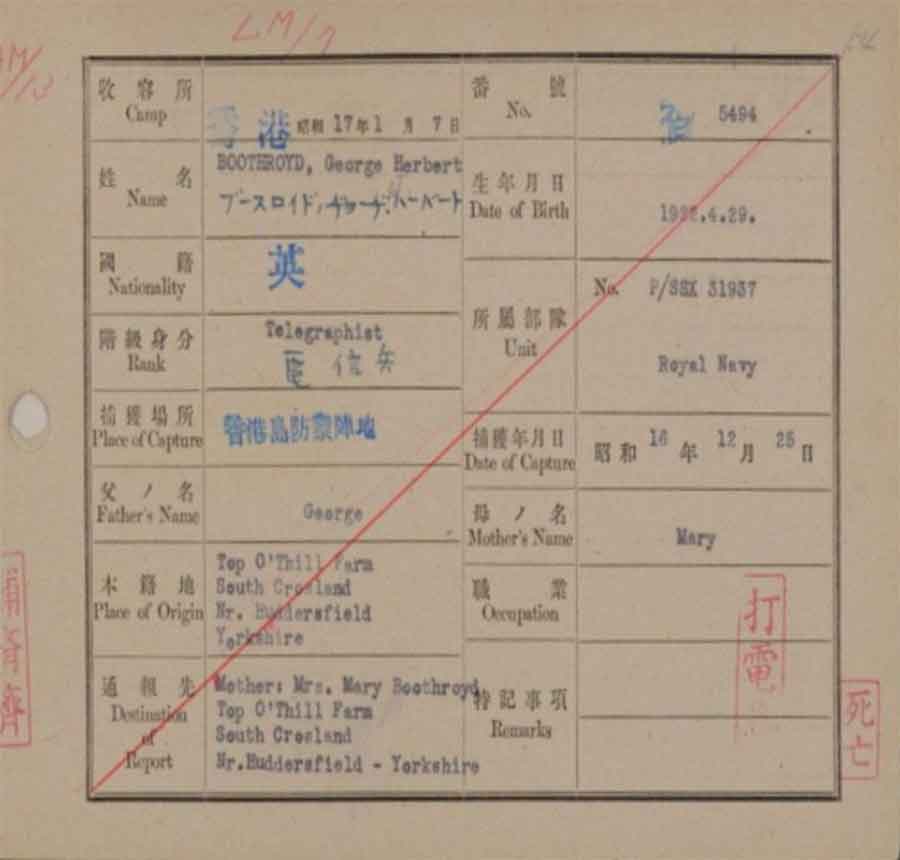 LM/7
收容所
Camp
香港 昭和 17年1月7日
番號
No.
5494
姓名
Name
BOOTHROYD, George Herbert
ブースロイド,ヂョーヂ.ハーバート
生年月日
Date of Birth
1922.4.29.
國籍
Nationality
英
階級身分
Rank
Telegraphist
電信兵
所屬部隊
Unit
No. P/SSX 31937
Royal Navy
捕獲場所
Place of Capture
香港島防禦陣地
捕獲年月日
Date of Capture
昭和 16年 12月 25日
父ノ名
Father's Name
George
母ノ名
Mother's Name
Mary
本籍地
Place of Origin
Top O'Thill Farm
South Crosland
Nr. Huddersfield
Yorkshire
職業
Occupation
打電
通報先
Destination
of
Report
Mother: Mrs. Mary Boothroyd
Top O'Thill Farm
South Crosland
Nr.Huddersfield - Yorkshire
特記事項
Remarks
死亡